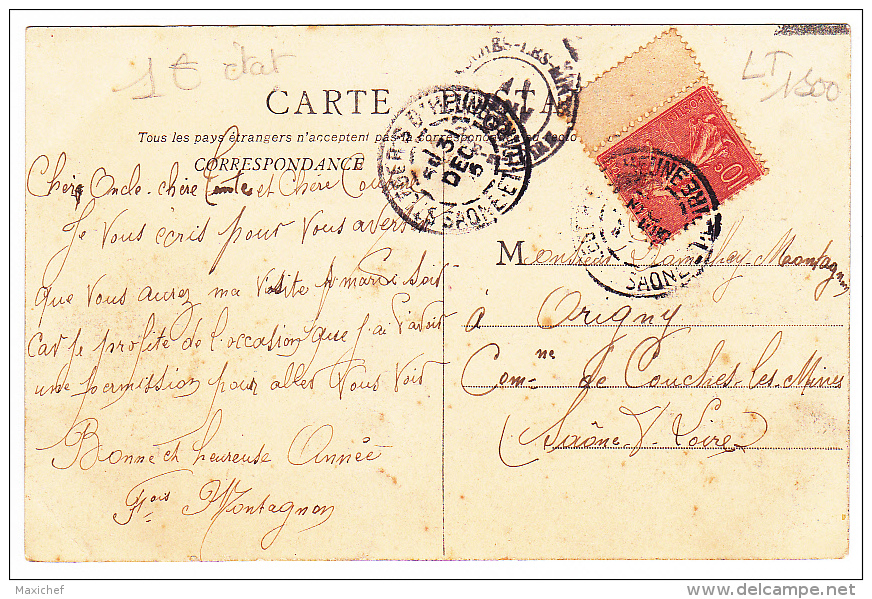 1 € état
LT
1500
CARTE POSTALE
Tous les pays étrangers n'acceptent pas la correspondance au recto
CORRESPONDANCE
Chers Oncle chère et Chère
Je Vous écris pour Vous avertir
que vous aurez ma visite mardi soir
car je profite de l'occasion que j'ai d'avoir
une permission pour aller Vous voir
Bonne et heureuse Année
Fçois Montagnon
Monsieur Montagnon
à Origny
Comne de Couches-les-Mines
Saône & Loire
SAONE ET
31
DEC
05
SAONE
10
POSTES
Maxichef
delcampe.net